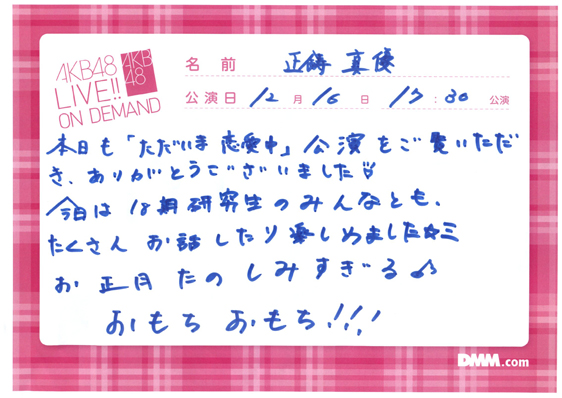 AKB48
LIVE!!
ON DEMAND
AKB
48
名前 正鋳真優
公演日 12月16日 17:30公演
本日も「ただいま恋愛中」公演をご覧いただ
き、ありがとうございました
今日は18期研究生のみんなとも、
たくさんお話したり楽しめました☆ミ
お正月たのしみすぎる♪
おもちおもち!!!
DMM.com